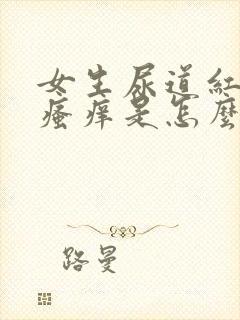 女生尿道紅
瘙痒是怎麼
路曼